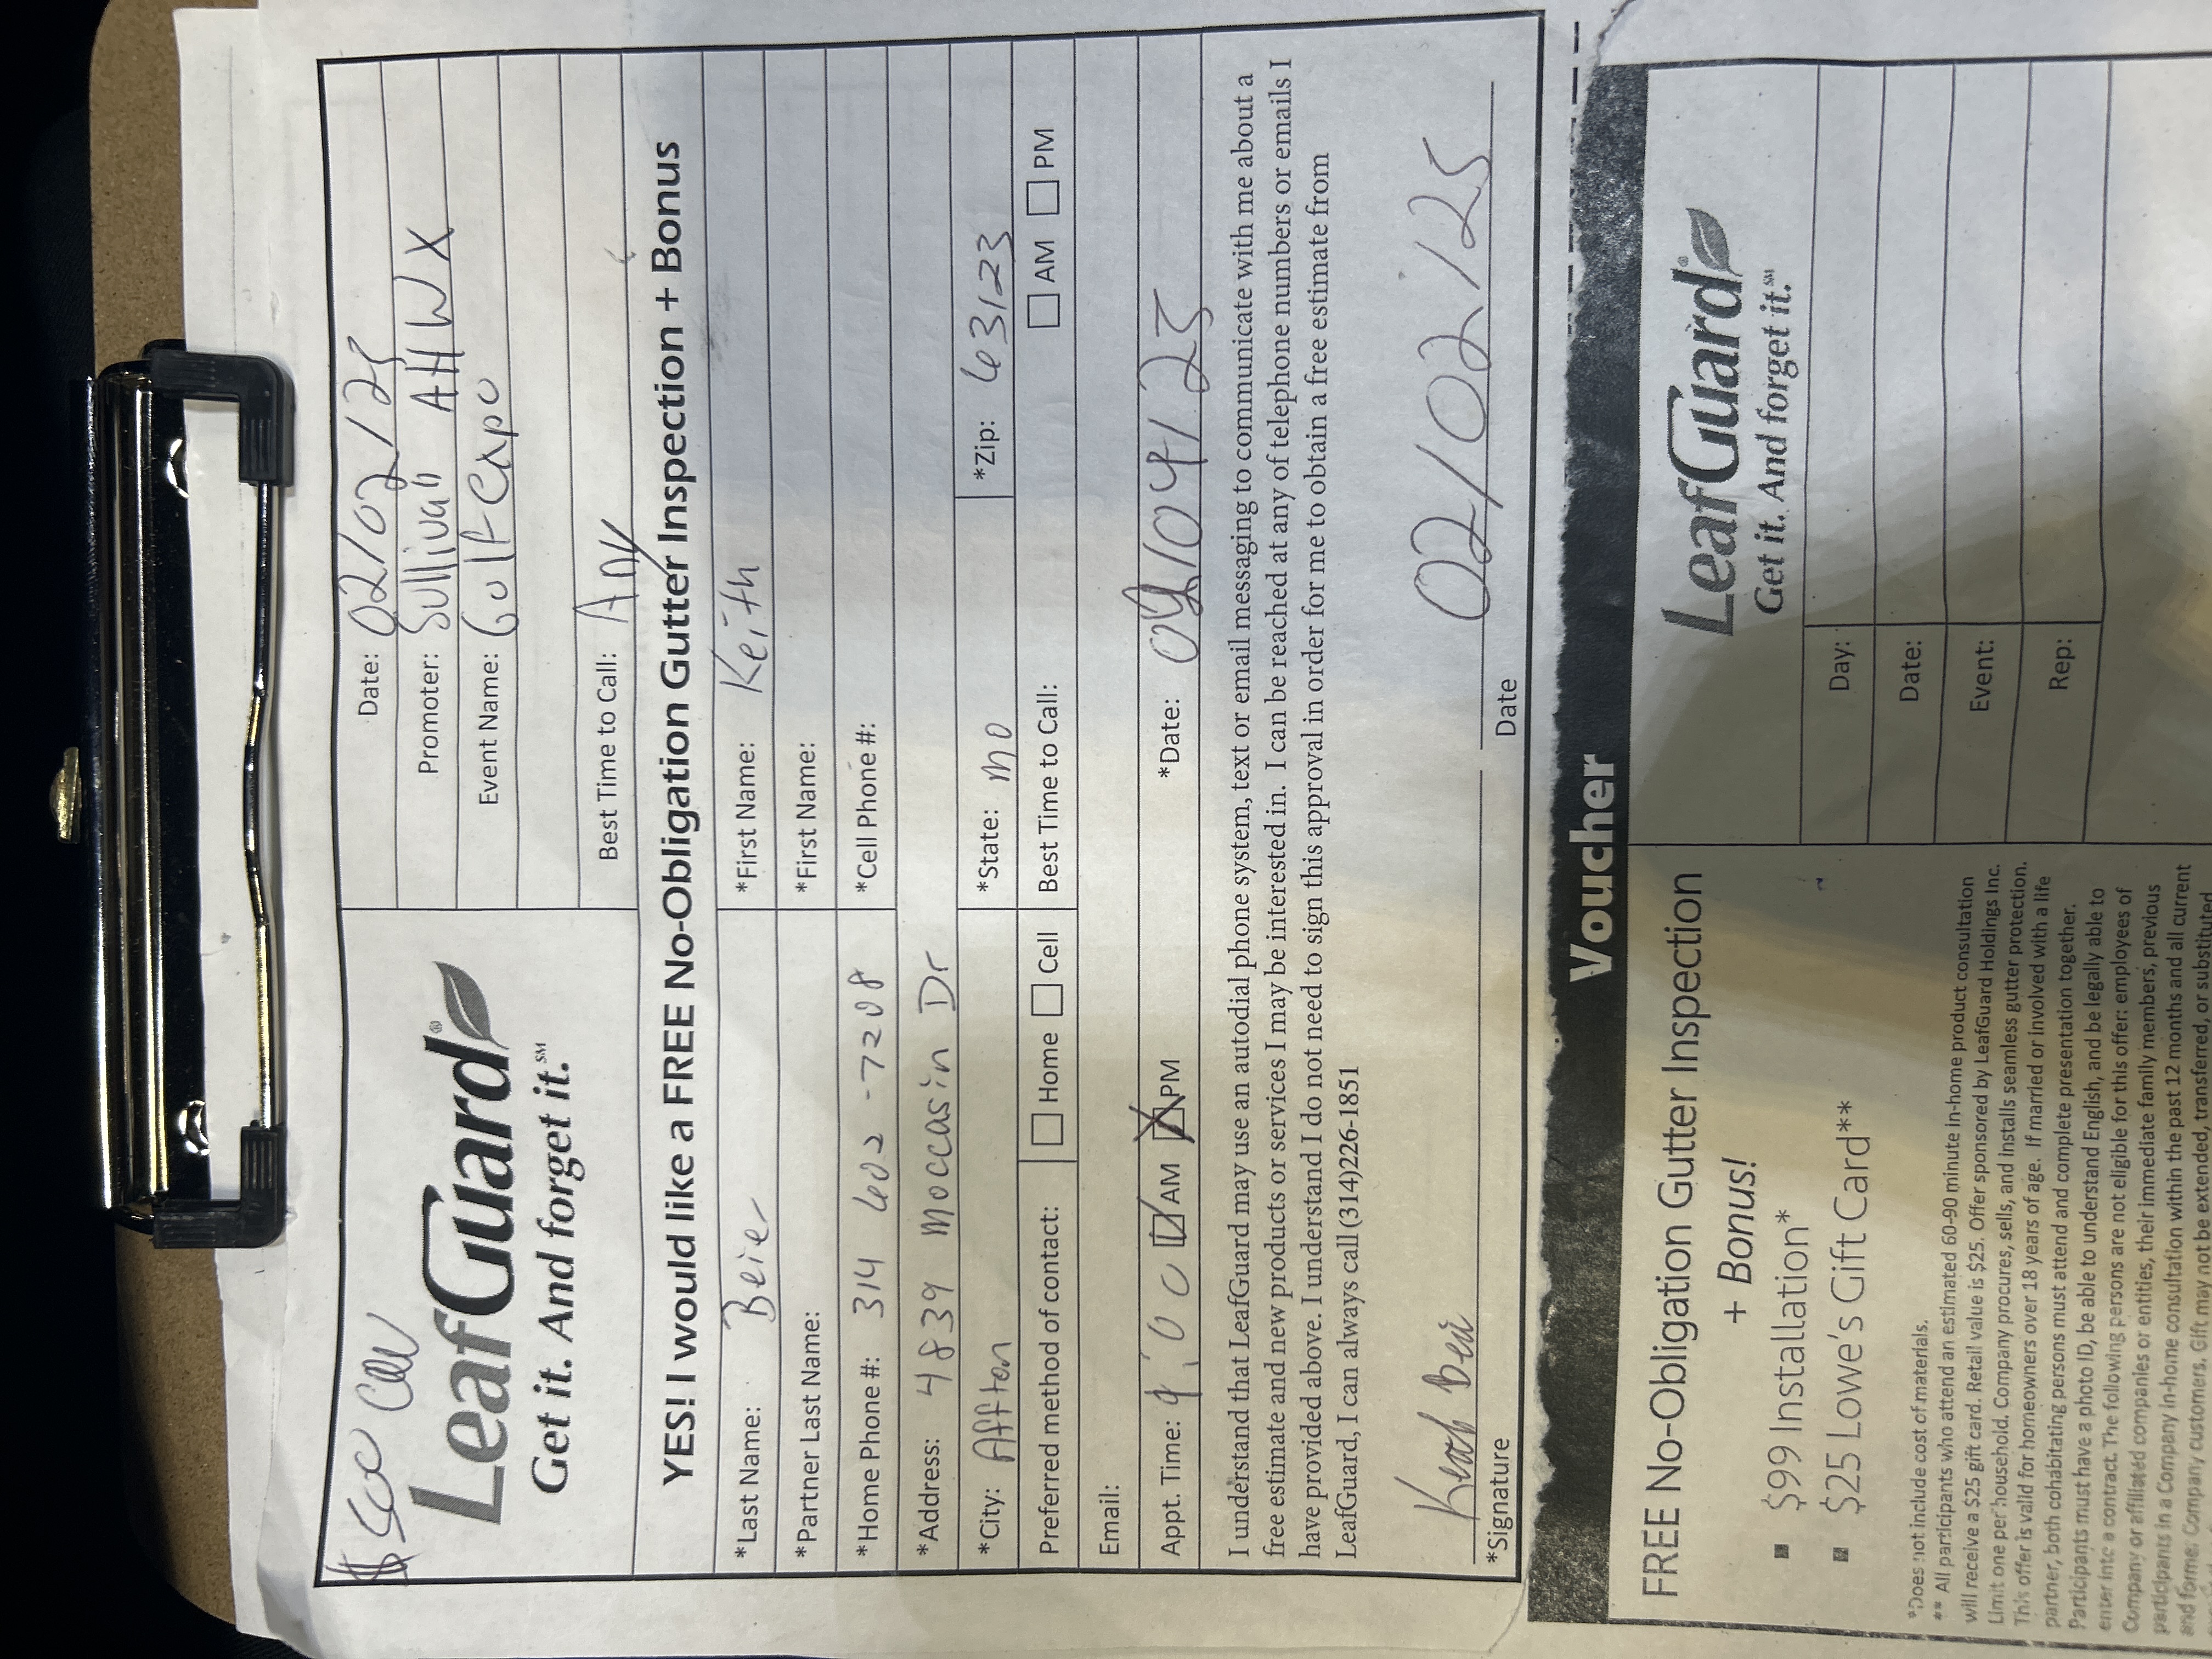 $500 COU
LeafGuard®
Get it. And forget it.℠
Date: 02/02/25
Promoter: Sullivan AHWX
Event Name: Golf expo
Best Time to Call: Any
YES! I would like a FREE No-Obligation Gutter Inspection + Bonus
*Last Name: Beier *First Name: Keith
*Partner Last Name: *First Name:
*Home Phone #: 314 602-7208 *Cell Phone #:
*Address: 4839 Moccasin Dr
*City: Affton *State: MO *Zip: 63123
Preferred method of contact: Home Cell Best Time to Call: AM PM
Email:
Appt. Time: 9:00 AM PM *Date: 02/04/25
I understand that LeafGuard may use an autodial phone system, text or email messaging to communicate with me about a
free estimate and new products or services I may be interested in. I can be reached at any of telephone numbers or emails I
have provided above. I understand I do not need to sign this approval in order for me to obtain a free estimate from
LeafGuard, I can always call (314)226-1851
Keith Beier 02/02/25
*Signature Date
Voucher
FREE No-Obligation Gutter Inspection
+ Bonus!
▪ $99 Installation*
▪ $25 Lowe's Gift Card**
*Does not include cost of materials.
** All participants who attend an estimated 60-90 minute in-home product consultation
will receive a $25 gift card. Retail value is $25. Offer sponsored by LeafGuard Holdings Inc.
Limit one per household. Company procures, sells, and installs seamless gutter protection.
This offer is valid for homeowners over 18 years of age. If married or involved with a life
partner, both cohabitating persons must attend and complete presentation together.
Participants must have a photo ID, be able to understand English, and be legally able to
enter into a contract. The following persons are not eligible for this offer: employees of
Company or affiliated companies or entities, their immediate family members, previous
participants in a Company in-home consultation within the past 12 months and all current
and former Company customers. Gift may not be extended, transferred, or substituted
LeafGuard®
Get it. And forget it.℠
Day:
Date:
Event:
Rep: